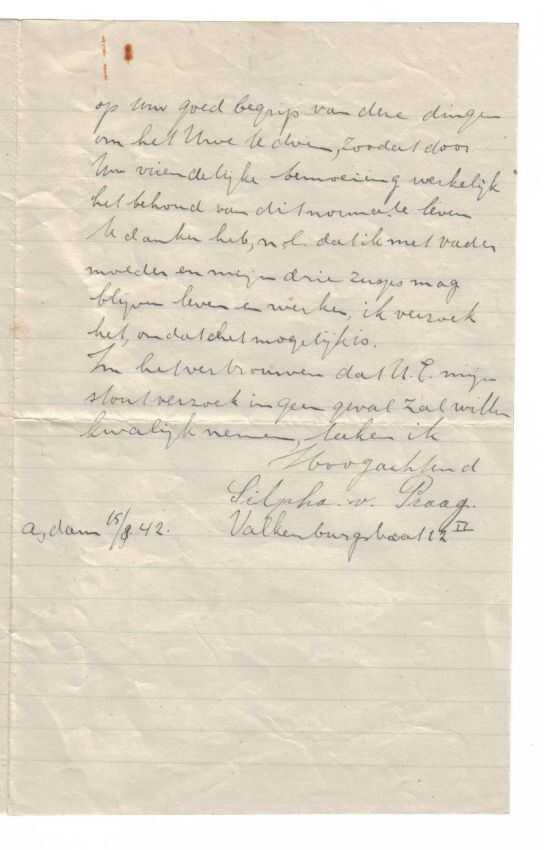 op Uw goed begrip van deze dingen
om het Uwe te doen, zoodat door
Uw vriendelijke bemoeiing werkelijk
het behoud van dit normale leven
te danken heb, n.l. dat ik met vader
moeder en mijn drie zusjes mag
blijven leven en werken, ik verzoek
het, omdat het mogelijk is.
In het vertrouwen dat U.E. mijn
stout verzoek in geen geval zal willen
kwalijk nemen, teken ik
Hoogachtend
v. Praag.
A,dam 15/8.42. Valkenburgstraat 12 II